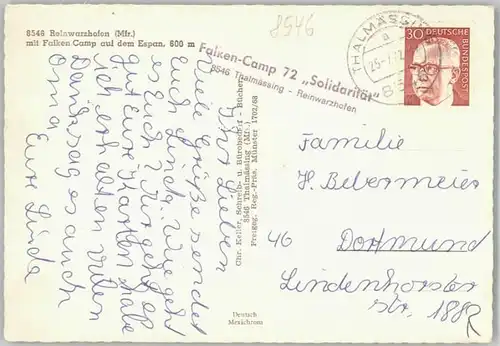 8546 Reinwarzhofen (Mfr.)
mit Falken Camp auf dem Espan, 600 m
8546
Falken-Camp 72 „Solidarität"
8546 Thalmässing - Reinwarzhofen
THALMÄSSING
a
30 DEUTSCHE
BUNDESPOST
Ihr Lieben
Viele Grüße sendet
euch Linda. Wie geht
es Euch? Mir geht es
gut eure Karten habe
ich erhalten vielen
Dank sag es auch
Oma Eure Linda
Chr. Keller, Schreib- u. Bürobedarf - Bücher
8546 Thalmässing (Mfr.)
Freigeg. Reg.-Präs. Münster 1702/68
Deutsch
Mexichrom
Familie
H. Bebermeier
46 Dortmund
Lindenhorster
str. 188